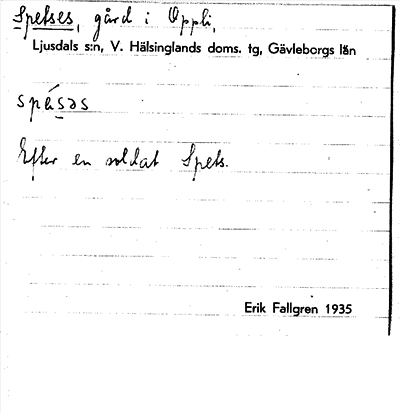 Spetses, gård i Öppli,
Ljusdals s:n, V. Hälsinglands doms. tg, Gävleborgs län
Efter en soldat Spets.
Erik Fallgren 1935